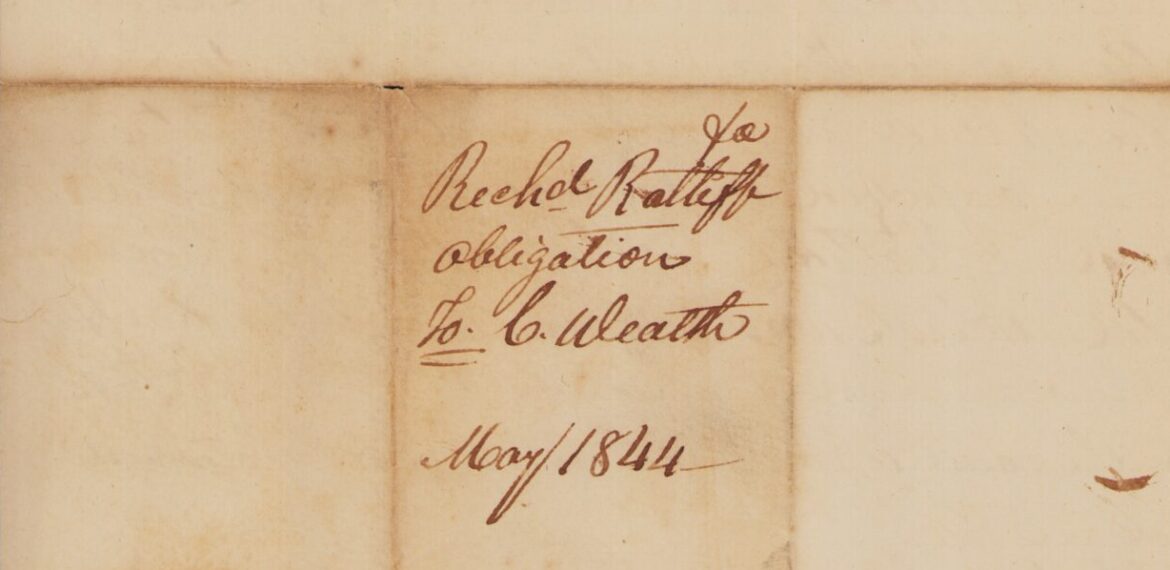 &co
Rech^d Ratliff
obligation
To. C. Weatth
May/1844